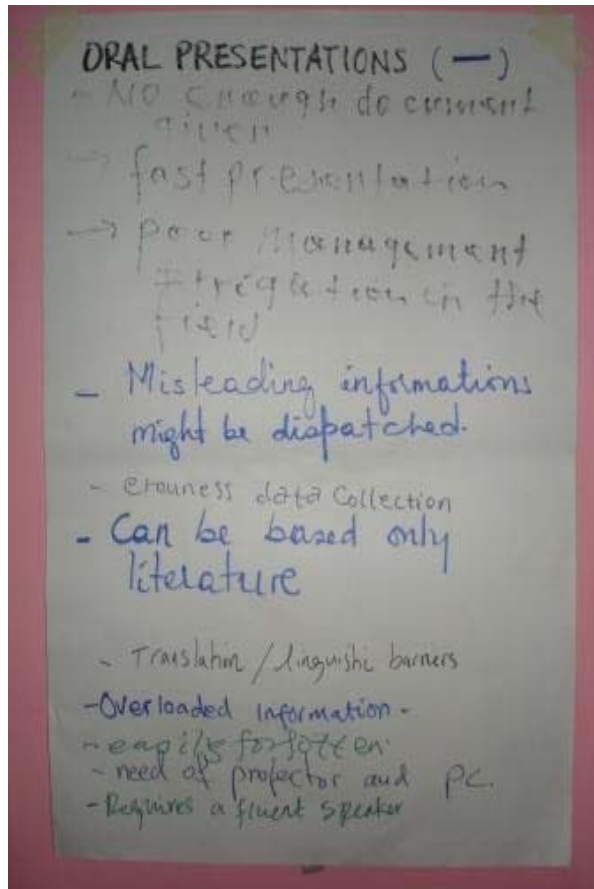 ORAL PRESENTATIONS (—)
- NO enough document
given
→ fast presentation
→ poor management
in the
field
- Misleading informations
might be dispatched.
- erouness data Collection
- Can be based only
literature
- Translation / linguistic barriers
- Overloaded information -
- easily forgotten.
- need of projector and PC.
- Requires a fluent speaker